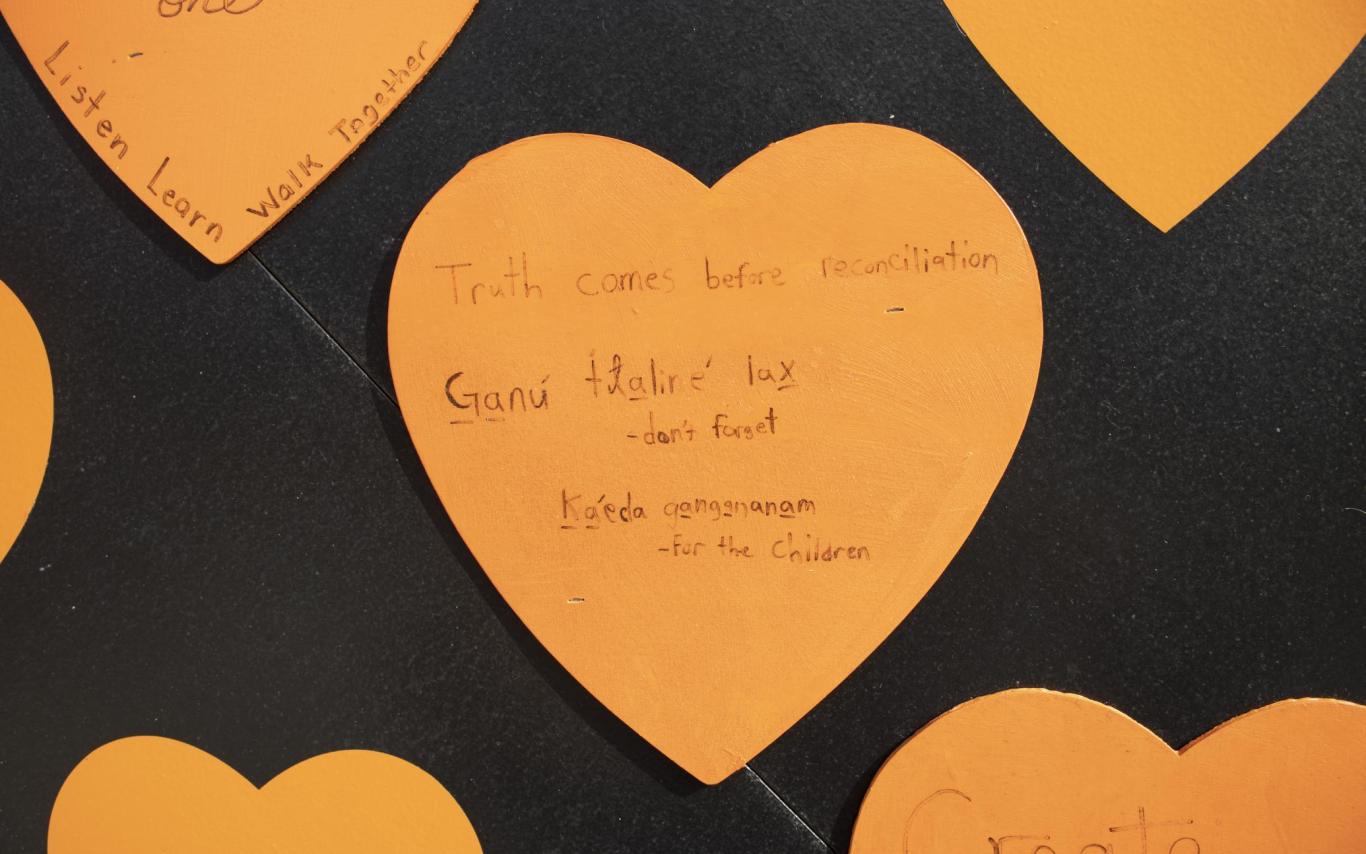 one
Listen Learn Walk Together
Truth comes before reconciliation
G̲a̲nú lax̲
-don't forget
K̲a̲´eda ga̲nga̲nana̲m
-For the Children
Create